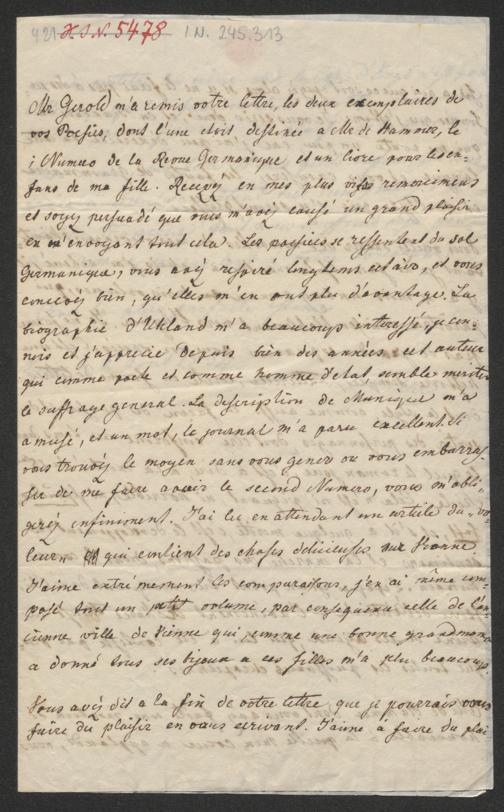 421 H.I.N. 5478 I.N. 245.313
Mr Gerold m'a remis votre lettre, les deux exemplaires de
vos Poesies, dont l'une etoit destinée a Mr de Hammer, le
1 Numero de la Revue Germanique et un livre pour les en-
fans de ma fille. Recevez en mes plus vifs remercimens
et soyez persuadé que vous m'avez causé un grand plaisir
en m'envoyant tout cela. Les poesies se ressentent du sol
Germanique, vous avez respiré longtems cet air, et vous
concevez bien, qu'elles m'en ont plu d'avantage. La
biographie d'Uhland m'a beaucoup interessé, je con-
nois et j'apprecie depuis bien des années cet auteur
qui comme poete et comme homme d'etat semble meriter
le suffrage general. La description de Munique m'a
amusé, et un mot, le journal m'a paru excellent. Si
vous trouvez le moyen sans vous gener ou vous embarras-
ser de me faire avoir le second Numero, vous m'obli-
gerez infiniment. J'ai lu en attendant un article du Vo-
leur qui contient des choses delicieuses sur Vienne.
J'aime extrémement les comparaisons, j'en ai même com-
posé tout un petit volume, par consequent celle de l'an-
cienne ville de Vienne qui, comme une bonne grandmere
a donné tous ses bijoux a ses filles m'a plu beaucoup.
Vous avez dit a la fin de votre lettre que je pourrais vous
faire du plaisir en vous ecrivant. J'aime à faire du plai-